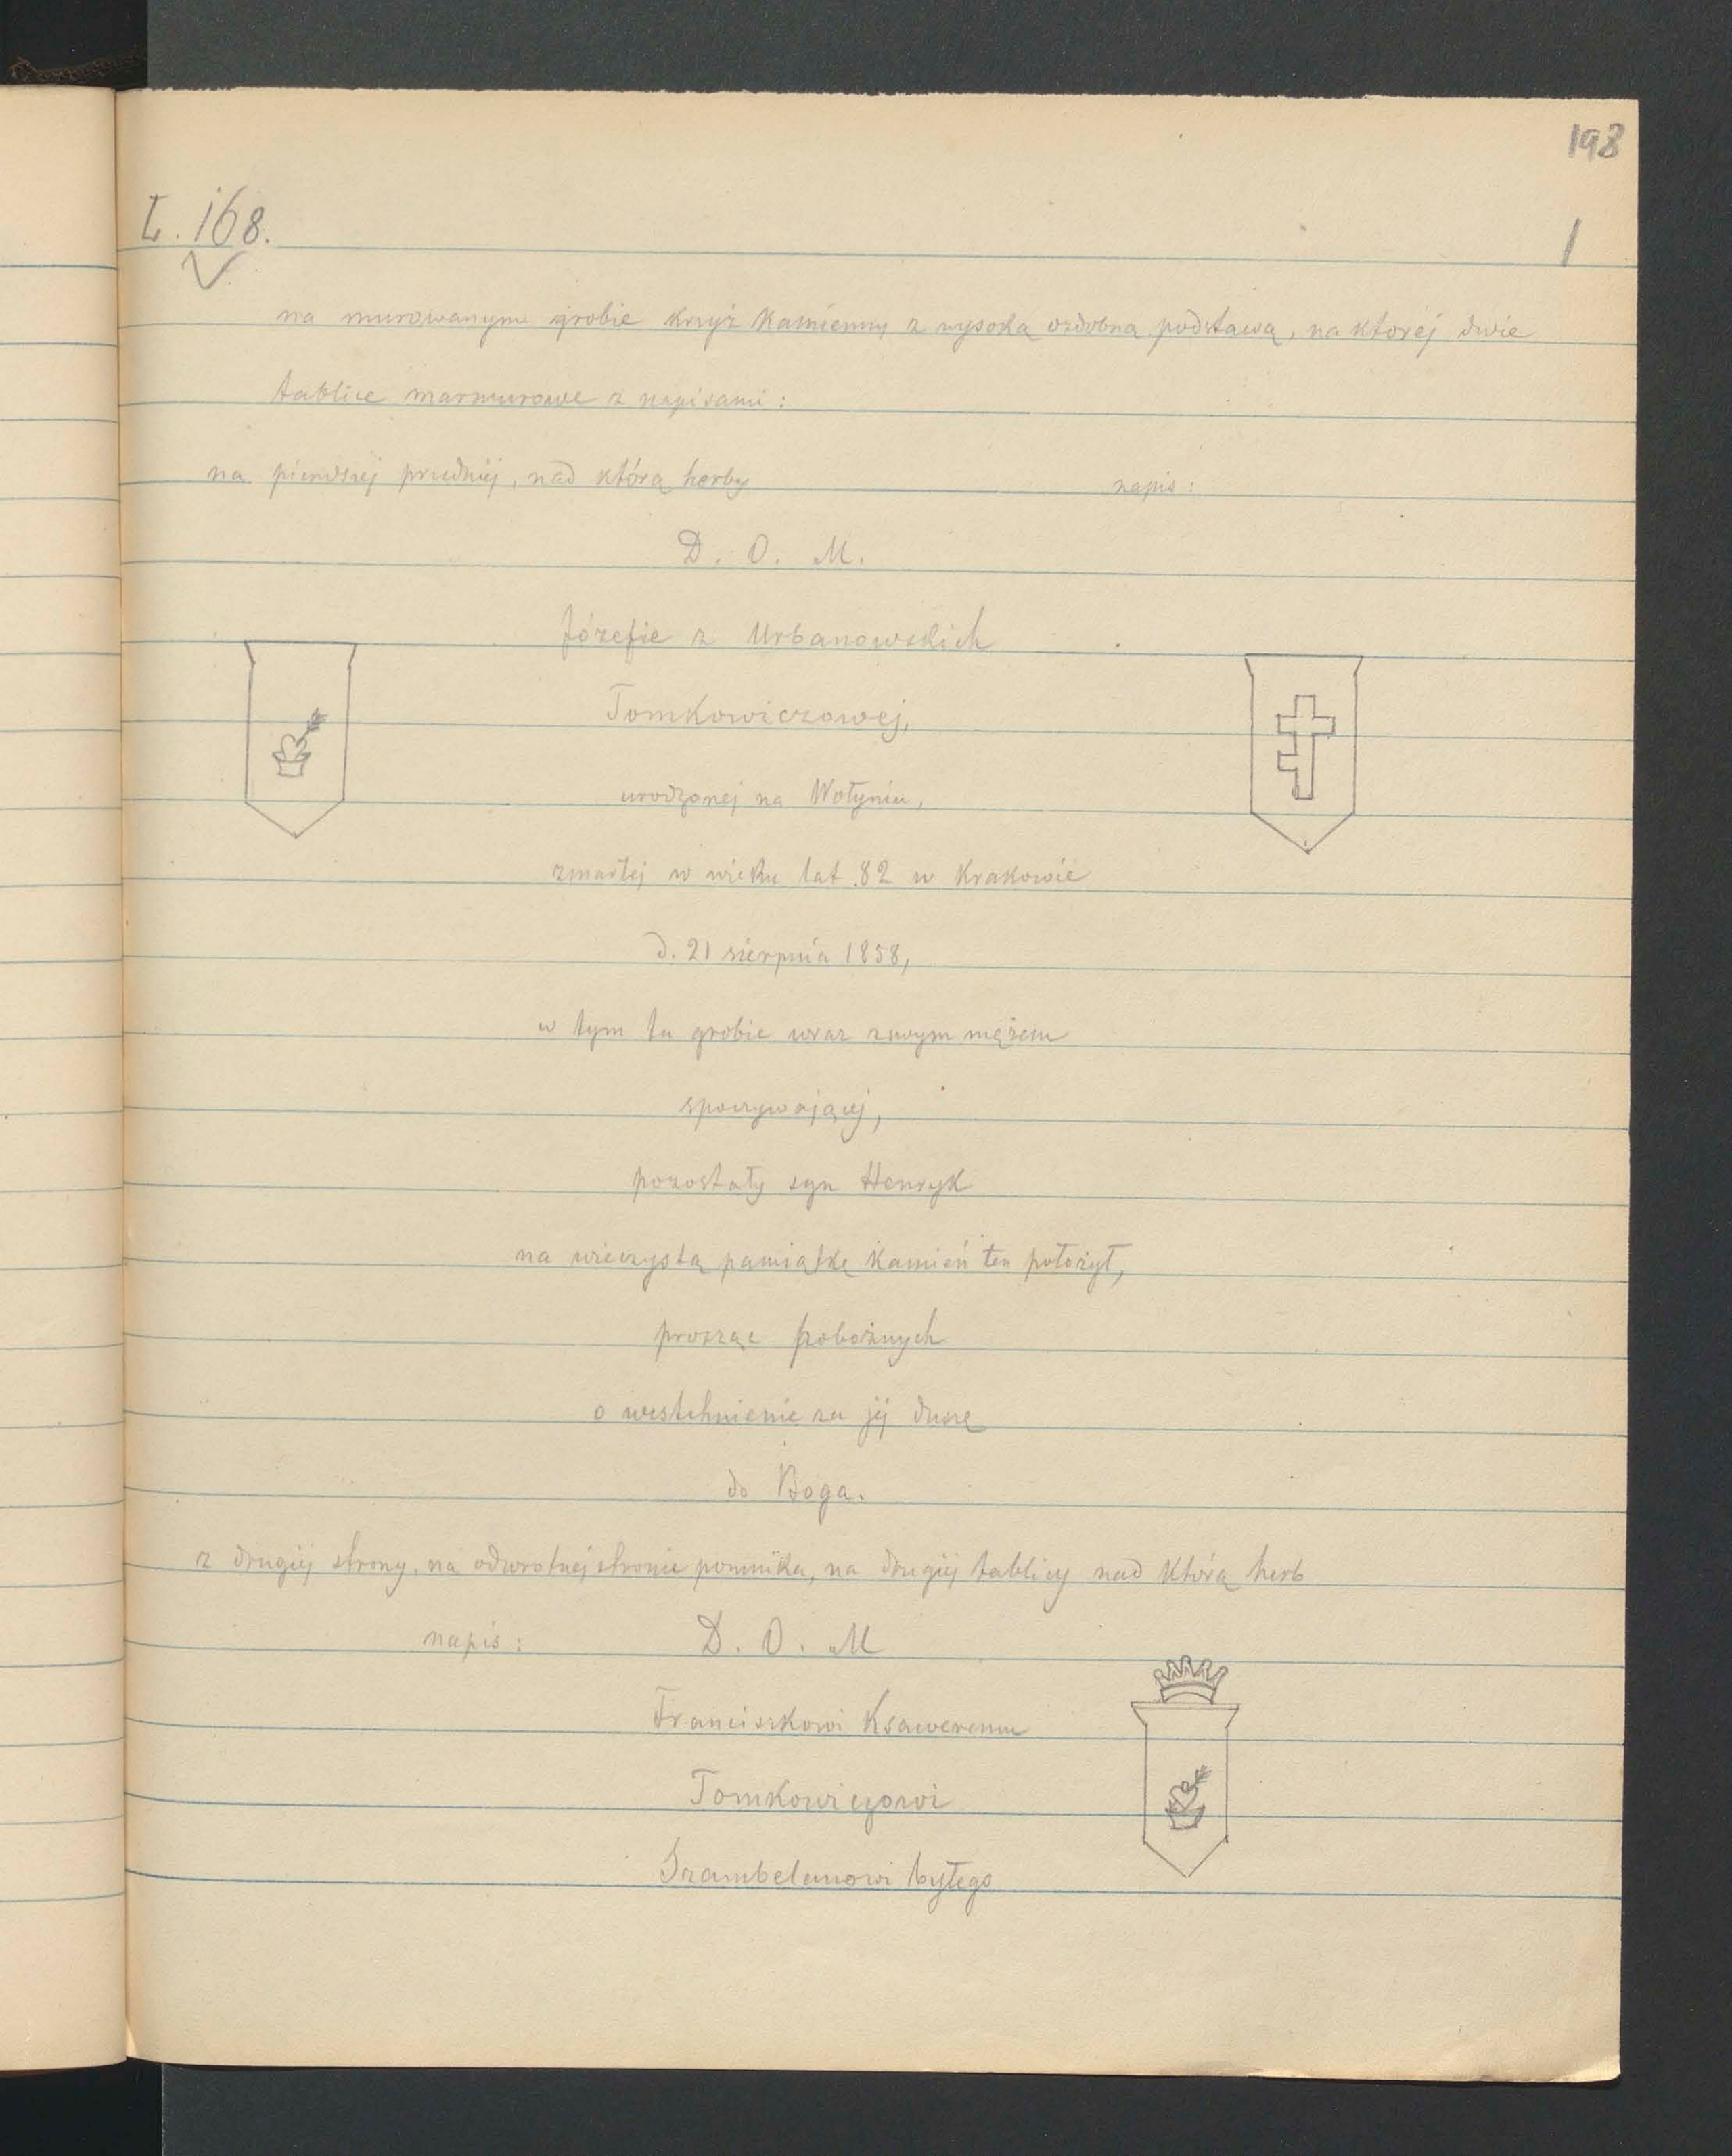 198
L. 168.
1
na murowanym grobie krzyż kamienny z wysoką ozdobną podstawą, na której dwie
tablice marmurowe z napisami:
na pierwszej przedniej, nad którą herby napis:
D. O. M.
Józefie z Urbanowskich
Tomkowiczowej,
urodzonej na Wołyniu,
zmarłej w wieku lat 82 w Krakowie
d. 21 sierpnia 1858,
w tym tu grobie wraz zswym mężem
spoczywającej,
pozostały syn Henryk
na wieczystą pamiątkę kamień ten położył,
prosząc pobożnych
o westchnienie za jej duszę
do Boga.
z drugiej strony, na odwrotnej stronie pomnika, na drugiej tablicy nad którą herb
napis: D. O. M
Franciszkowi Ksaweremu
Tomkowiczowi
Szambelanowi byłego